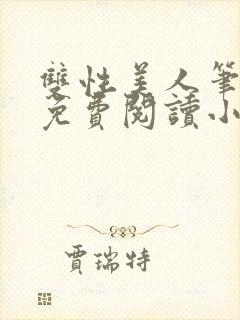 雙性美人筆
免費閱讀小
賈瑞特